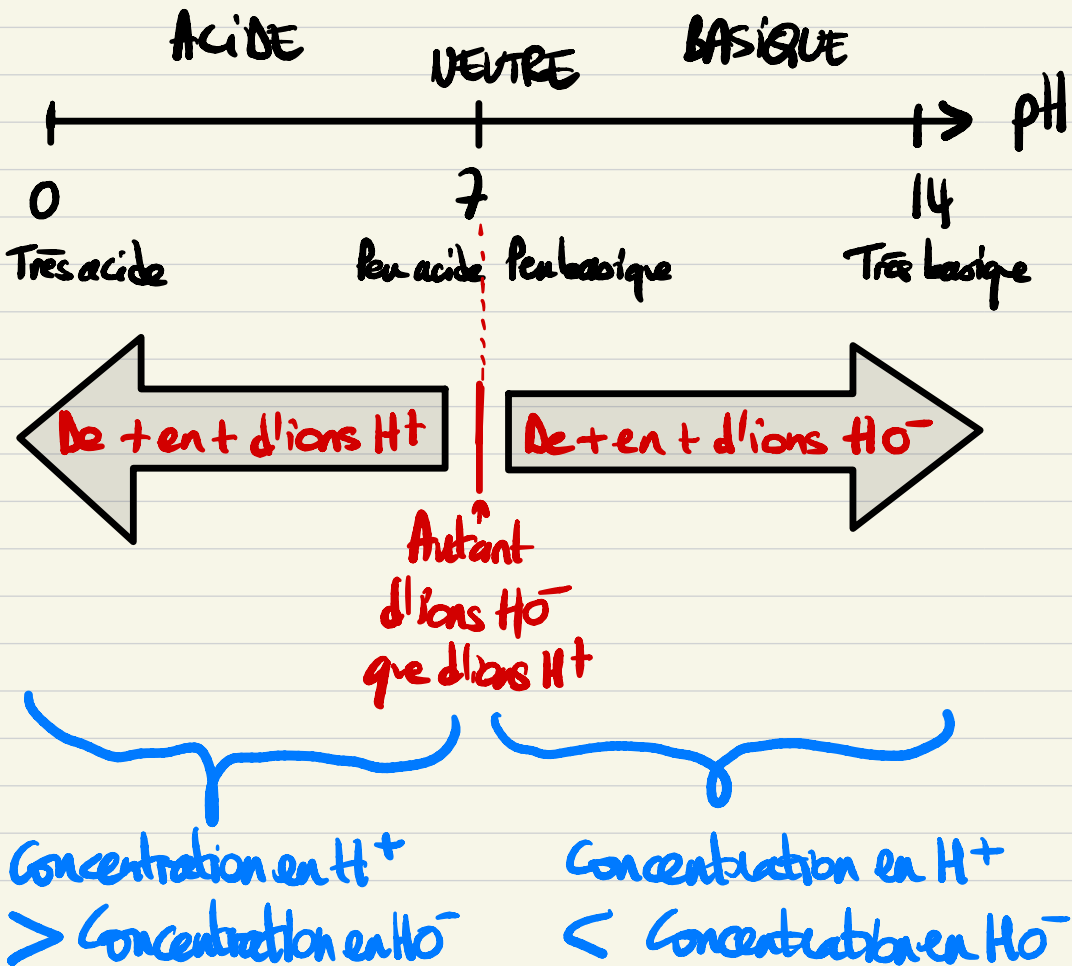 ACiDE NEUTRE BASiQUE
pH
0 7 14
Très acide Peu acide Peu basique Très basique
De + en + d'ions H⁺ De + en + d'ions HO⁻
Autant
d'ions HO⁻
que d'ions H⁺
Concentration en H⁺ Concentration en H⁺
> Concentration en HO⁻ < Concentration en HO⁻